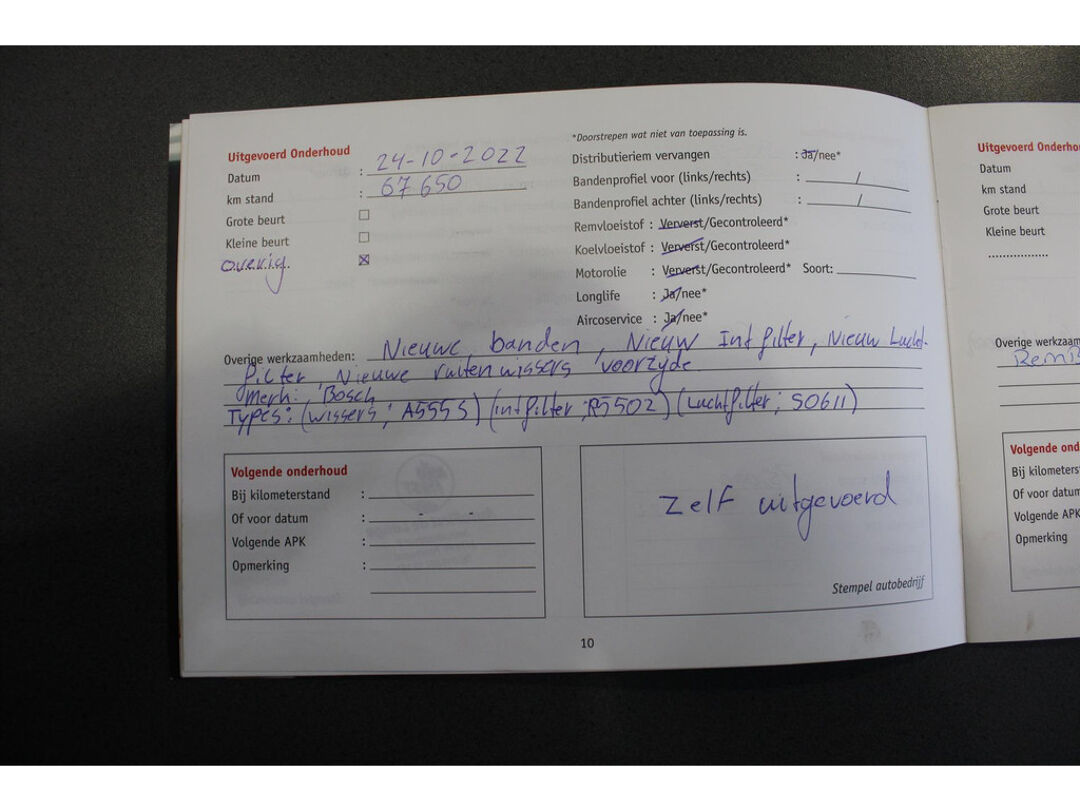 Uitgevoerd Onderhoud
Datum : 24-10-2022
km stand : 67 650
Grote beurt ☐
Kleine beurt ☐
overig. ☒
*Doorstrepen wat niet van toepassing is.
Distributieriem vervangen : Ja/nee*
Bandenprofiel voor (links/rechts) : /
Bandenprofiel achter (links/rechts) : /
Remvloeistof : Ververst/Gecontroleerd*
Koelvloeistof : Ververst/Gecontroleerd*
Motorolie : Ververst/Gecontroleerd* Soort:
Longlife : Ja/nee*
Aircoservice : Ja/nee*
Overige werkzaamheden: Nieuwe banden, Nieuw Intfilter, Nieuw Lucht-
filter, Nieuwe ruitenwissers voorzyde
merk: Bosch
TYPES: (wissers; A555S) (intfilter; R5502) (Luchtfilter; S0611)
Volgende onderhoud
Bij kilometerstand :
Of voor datum : - -
Volgende APK :
Opmerking :
Zelf uitgevoerd
Stempel autobedrijf
10
Uitgevoerd Onderho
Datum
km stand
Grote beurt
Kleine beurt
Overige werkzaam
Rem
Volgende ond
Bij kilometers
Of voor datum
Volgende APK
Opmerking